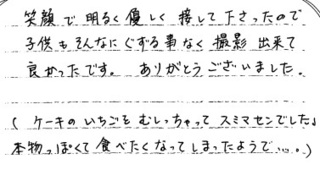 笑顔で明るく優しく接して下さったので
子供もそんなにぐずる事なく撮影出来て
良かったです。 ありがとうございました。
( ケーキのいちごをむしっちゃってスミマセンでした。
本物っぽくて食べたくなってしまったようで....。)